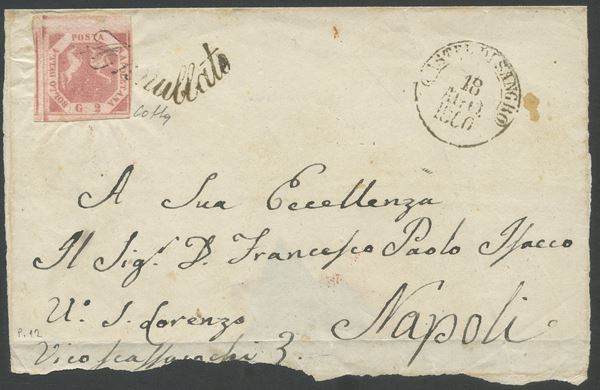 POSTA
BOLLO DELLA
NAPOLETANA
G. 2
Annullato
CASTEL DI SANGRO
18
1860
A Sua Eccellenza
Il Sig.r D. Francesco Paolo Isacco
V.o S. Lorenzo
Napoli
P. 12
Vico 3.